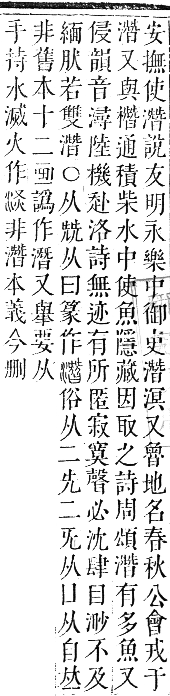 安撫使潛說友明永樂中御史潛溟又魯地名春秋公會戎于
潛又與橬通積柴水中使魚隱藏因取之詩周頌潛有多魚又
侵韻音潯陸機赴洛詩無迹有所匿寂寞聲必沈肆目眇不及
緬肰若雙潛○从兓从曰篆作濳俗从二先二旡从口从自𠀤
非舊本十二畫譌作潛又舉要从
手持水滅火作㷋非潛本義今刪